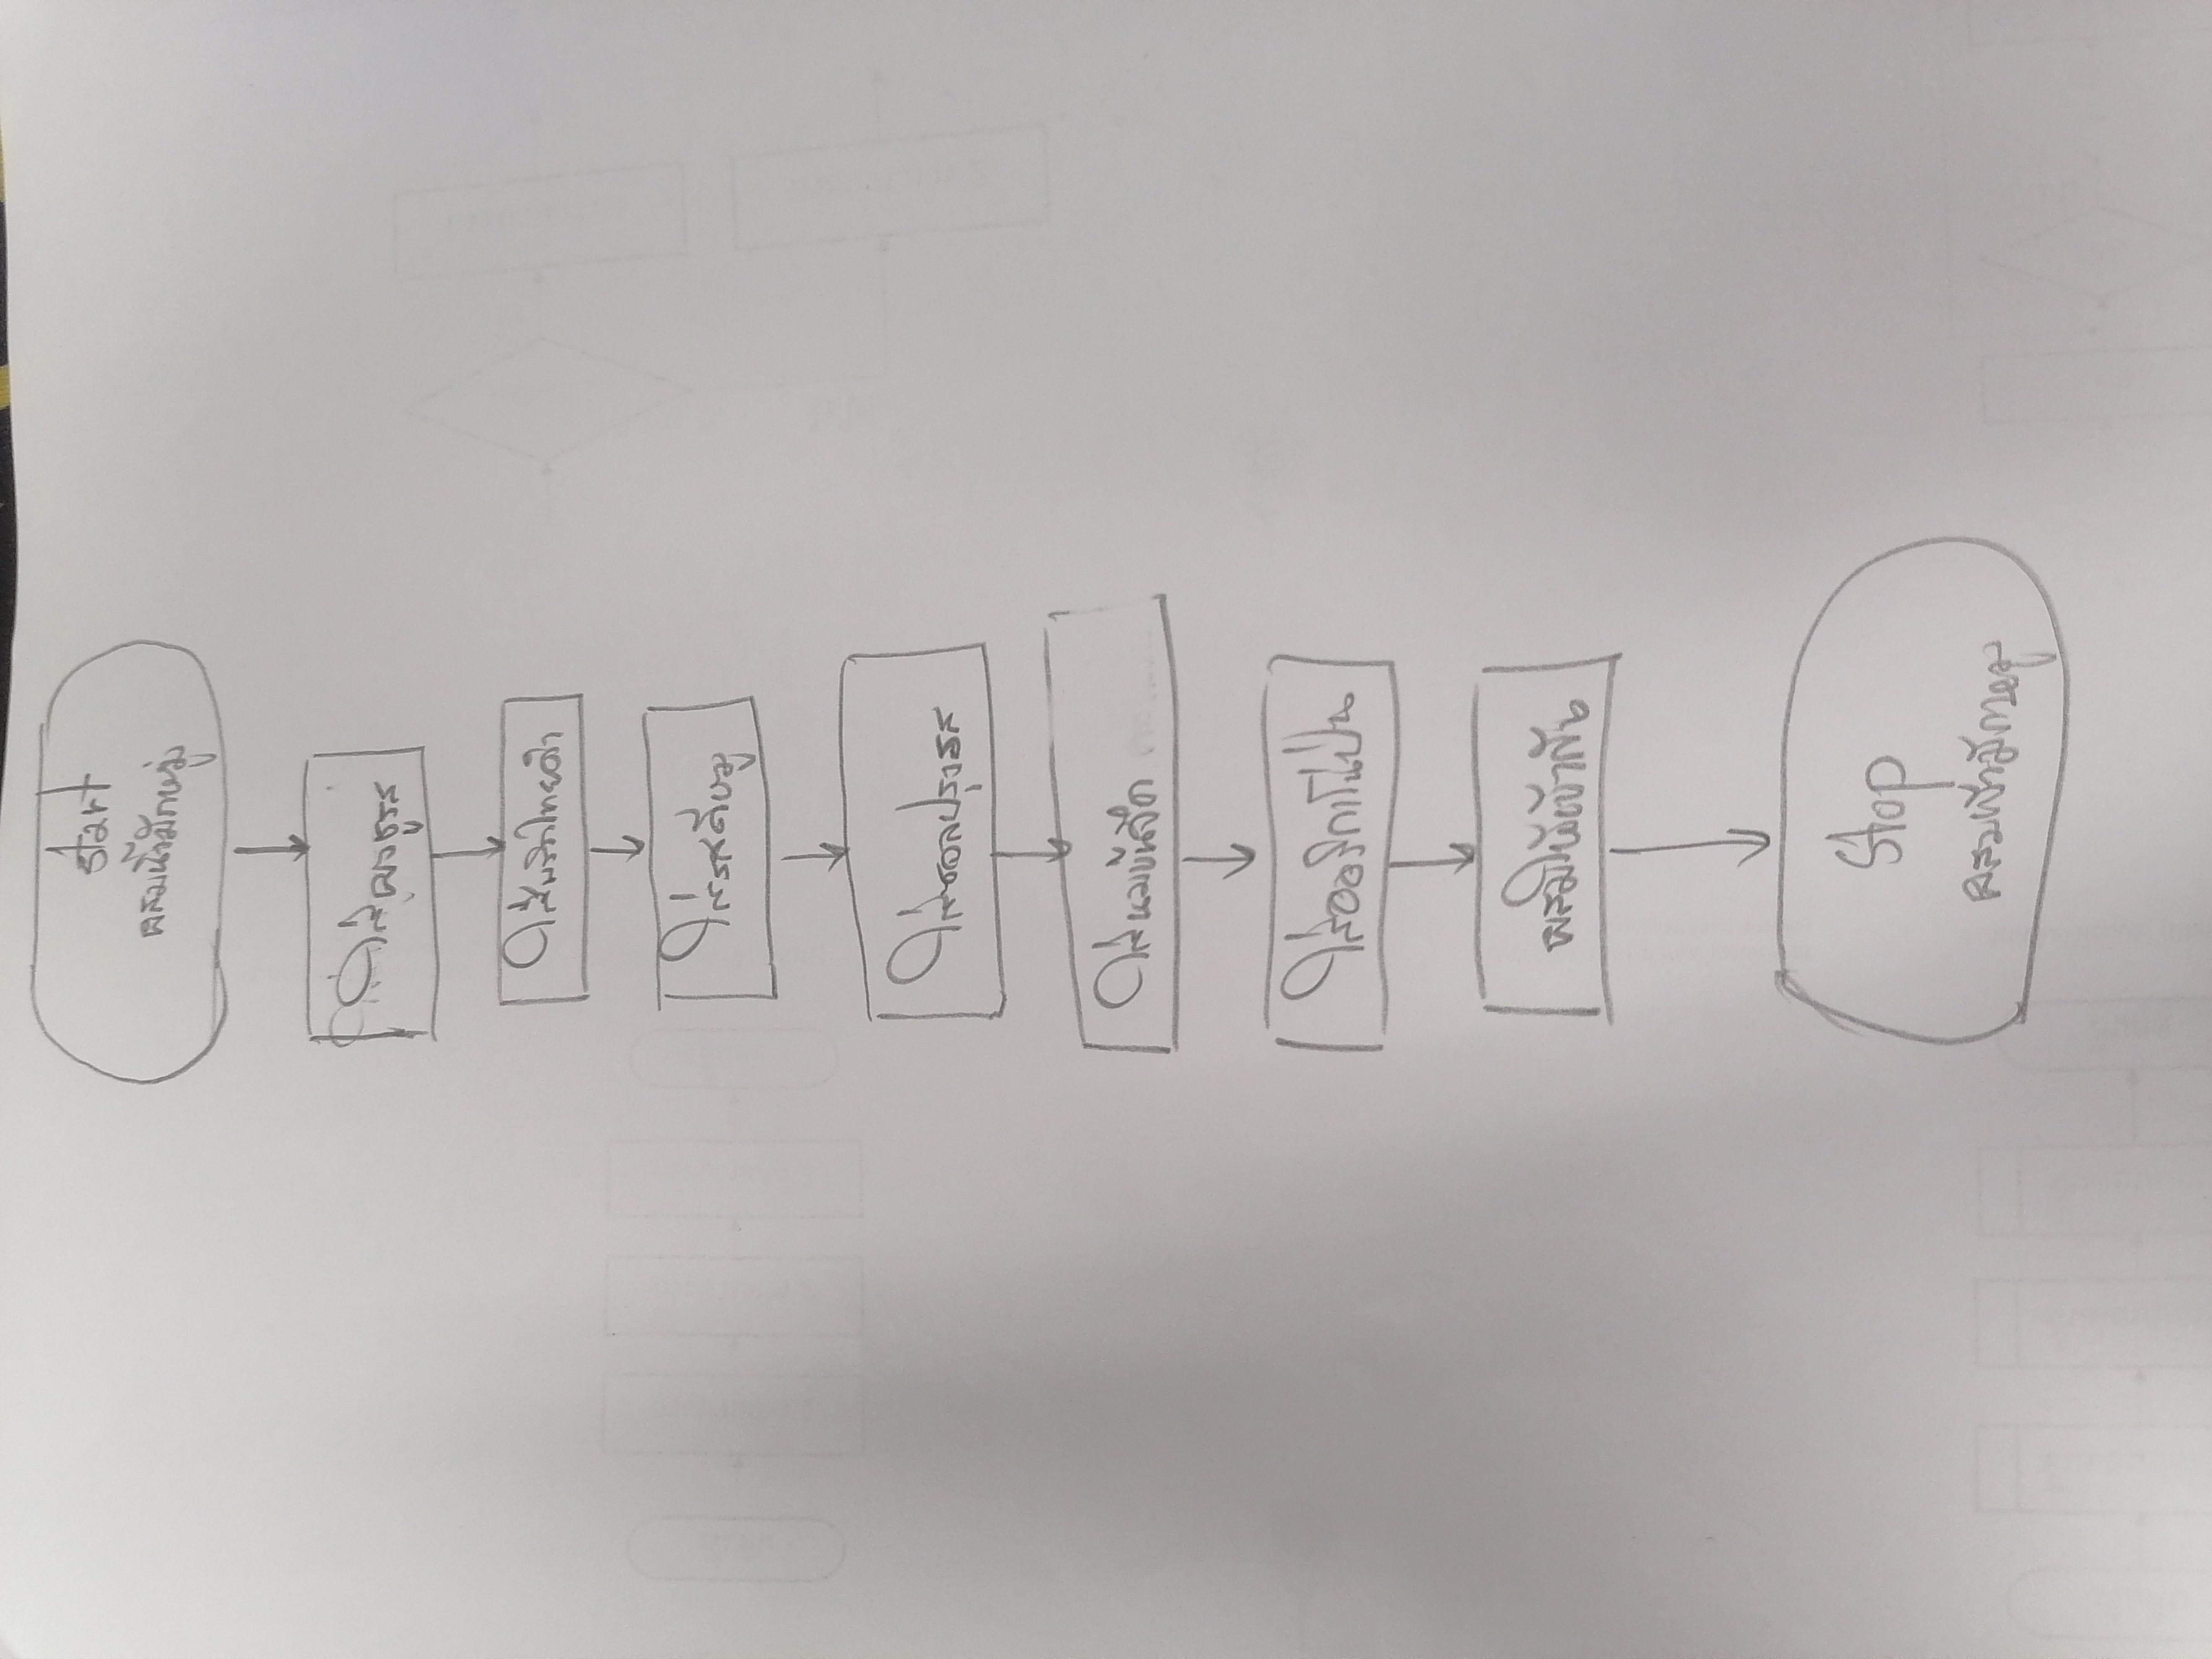 start
ผสมน้ำมักหมู่
ใส่ผงชูรส
ใส่พริกไทยดำ
ใส่รสดีหมู
ใส่ซอสปรุงรส
ใส่นมข้นจืด
ใส่ออริกาโน่ป่น
ผสมให้เข้ากัน
Stop
ผสมน้ำมักหมู